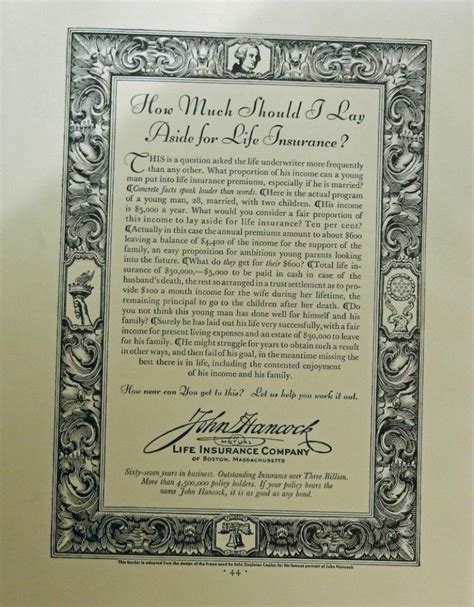 How Much Should I Lay
Aside for Life Insurance?
THIS is a question asked the life underwriter more frequently
than any other. What proportion of his income can a young
man put into life insurance premiums, especially if he is married?
¶Concrete facts speak louder than words. ¶Here is the actual program
of a young man, 28, married, with two children. ¶His income
is $5,000 a year. What would you consider a fair proportion of
this income to lay aside for life insurance? Ten per cent?
¶Actually in this case the annual premiums amount to about $600
leaving a balance of $4,400 of income for the support of the
family, an easy proposition for ambitious young parents looking
into the future. ¶What do they get for their $600? ¶Total life in-
surance of $30,000,—$5,000 to be paid in cash in case of the
husband's death, the rest so arranged in a trust settlement as to pro-
vide $100 a month income for the wife during her lifetime, the
remaining principal to go to the children after her death. ¶Do
you not think this young man has done well for himself and his
family? ¶Surely he has laid out his life very successfully, with a fair
income for present living expenses and an estate of $30,000 to leave
for his family. ¶He might struggle for years to obtain such a result
in other ways, and then fail of his goal, in the meantime missing the
best there is in life, including the contented enjoyment
of his income and his family.
How near can You get to this? Let us help you work it out.
John Hancock
MUTUAL
LIFE INSURANCE COMPANY
OF BOSTON, MASSACHUSETTS
Sixty-seven years in business. Outstanding Insurance over Three Billion.
More than 4,500,000 policy holders. If your policy bears the
name John Hancock, it is as good as any bond.
This border is adapted from the design of the frame used by John Singleton Copley for his famous portrait of John Hancock
· 44 ·